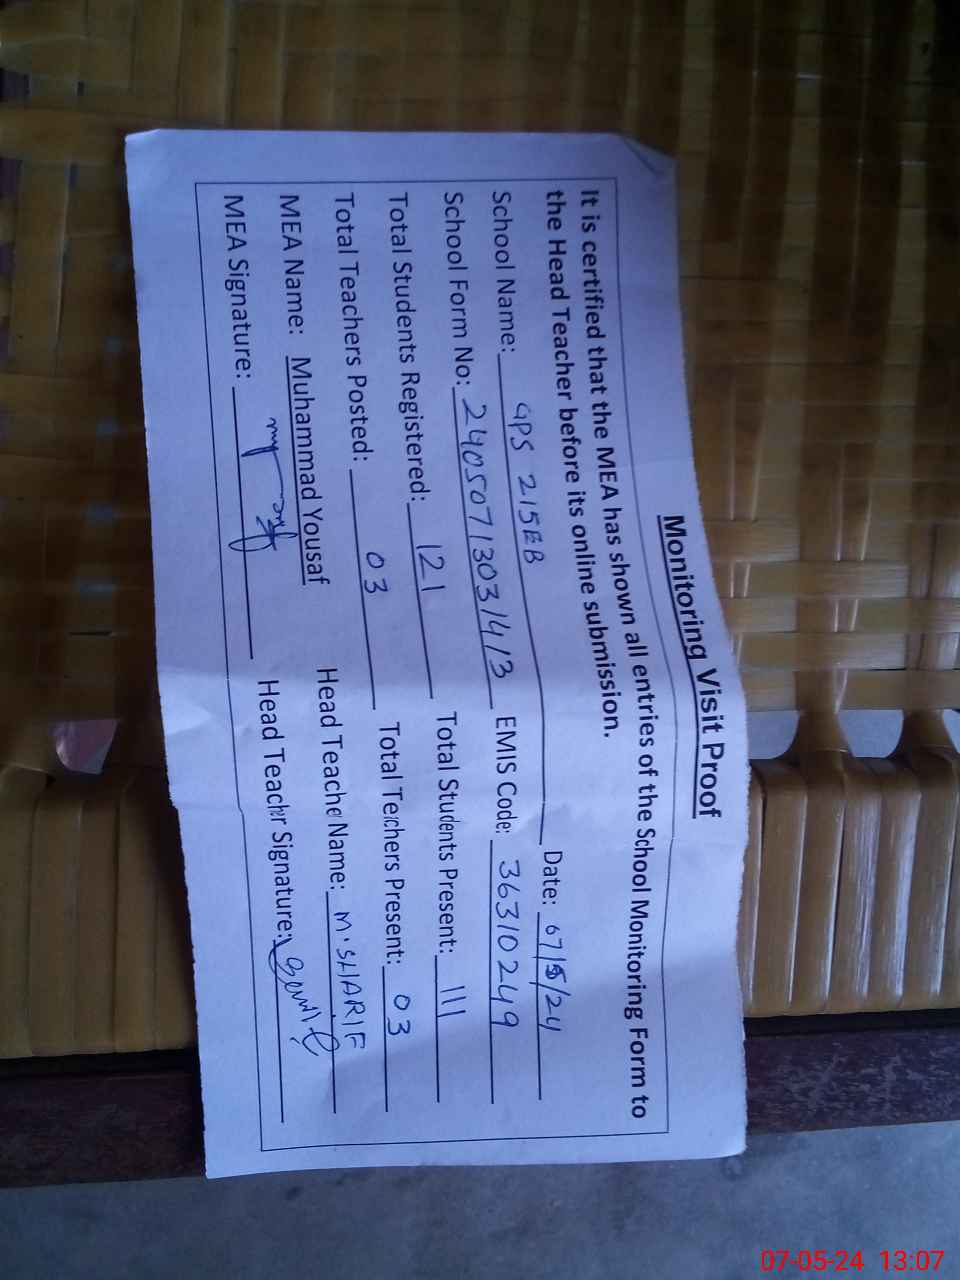 Monitoring Visit Proof
It is certified that the MEA has shown all entries of the School Monitoring Form to
the Head Teacher before its online submission.
School Name: GPS 215EB Date: 07/5/24
School Form No: 24050713031413 EMIS Code: 36310249
Total Students Registered: 121 Total Students Present: 111
Total Teachers Posted: 03 Total Teichers Present: 03
MEA Name: Muhammad Yousaf Head Teache Name: M. SHARIF
MEA Signature: Head Teacher Signature:
07-05-24 13:07